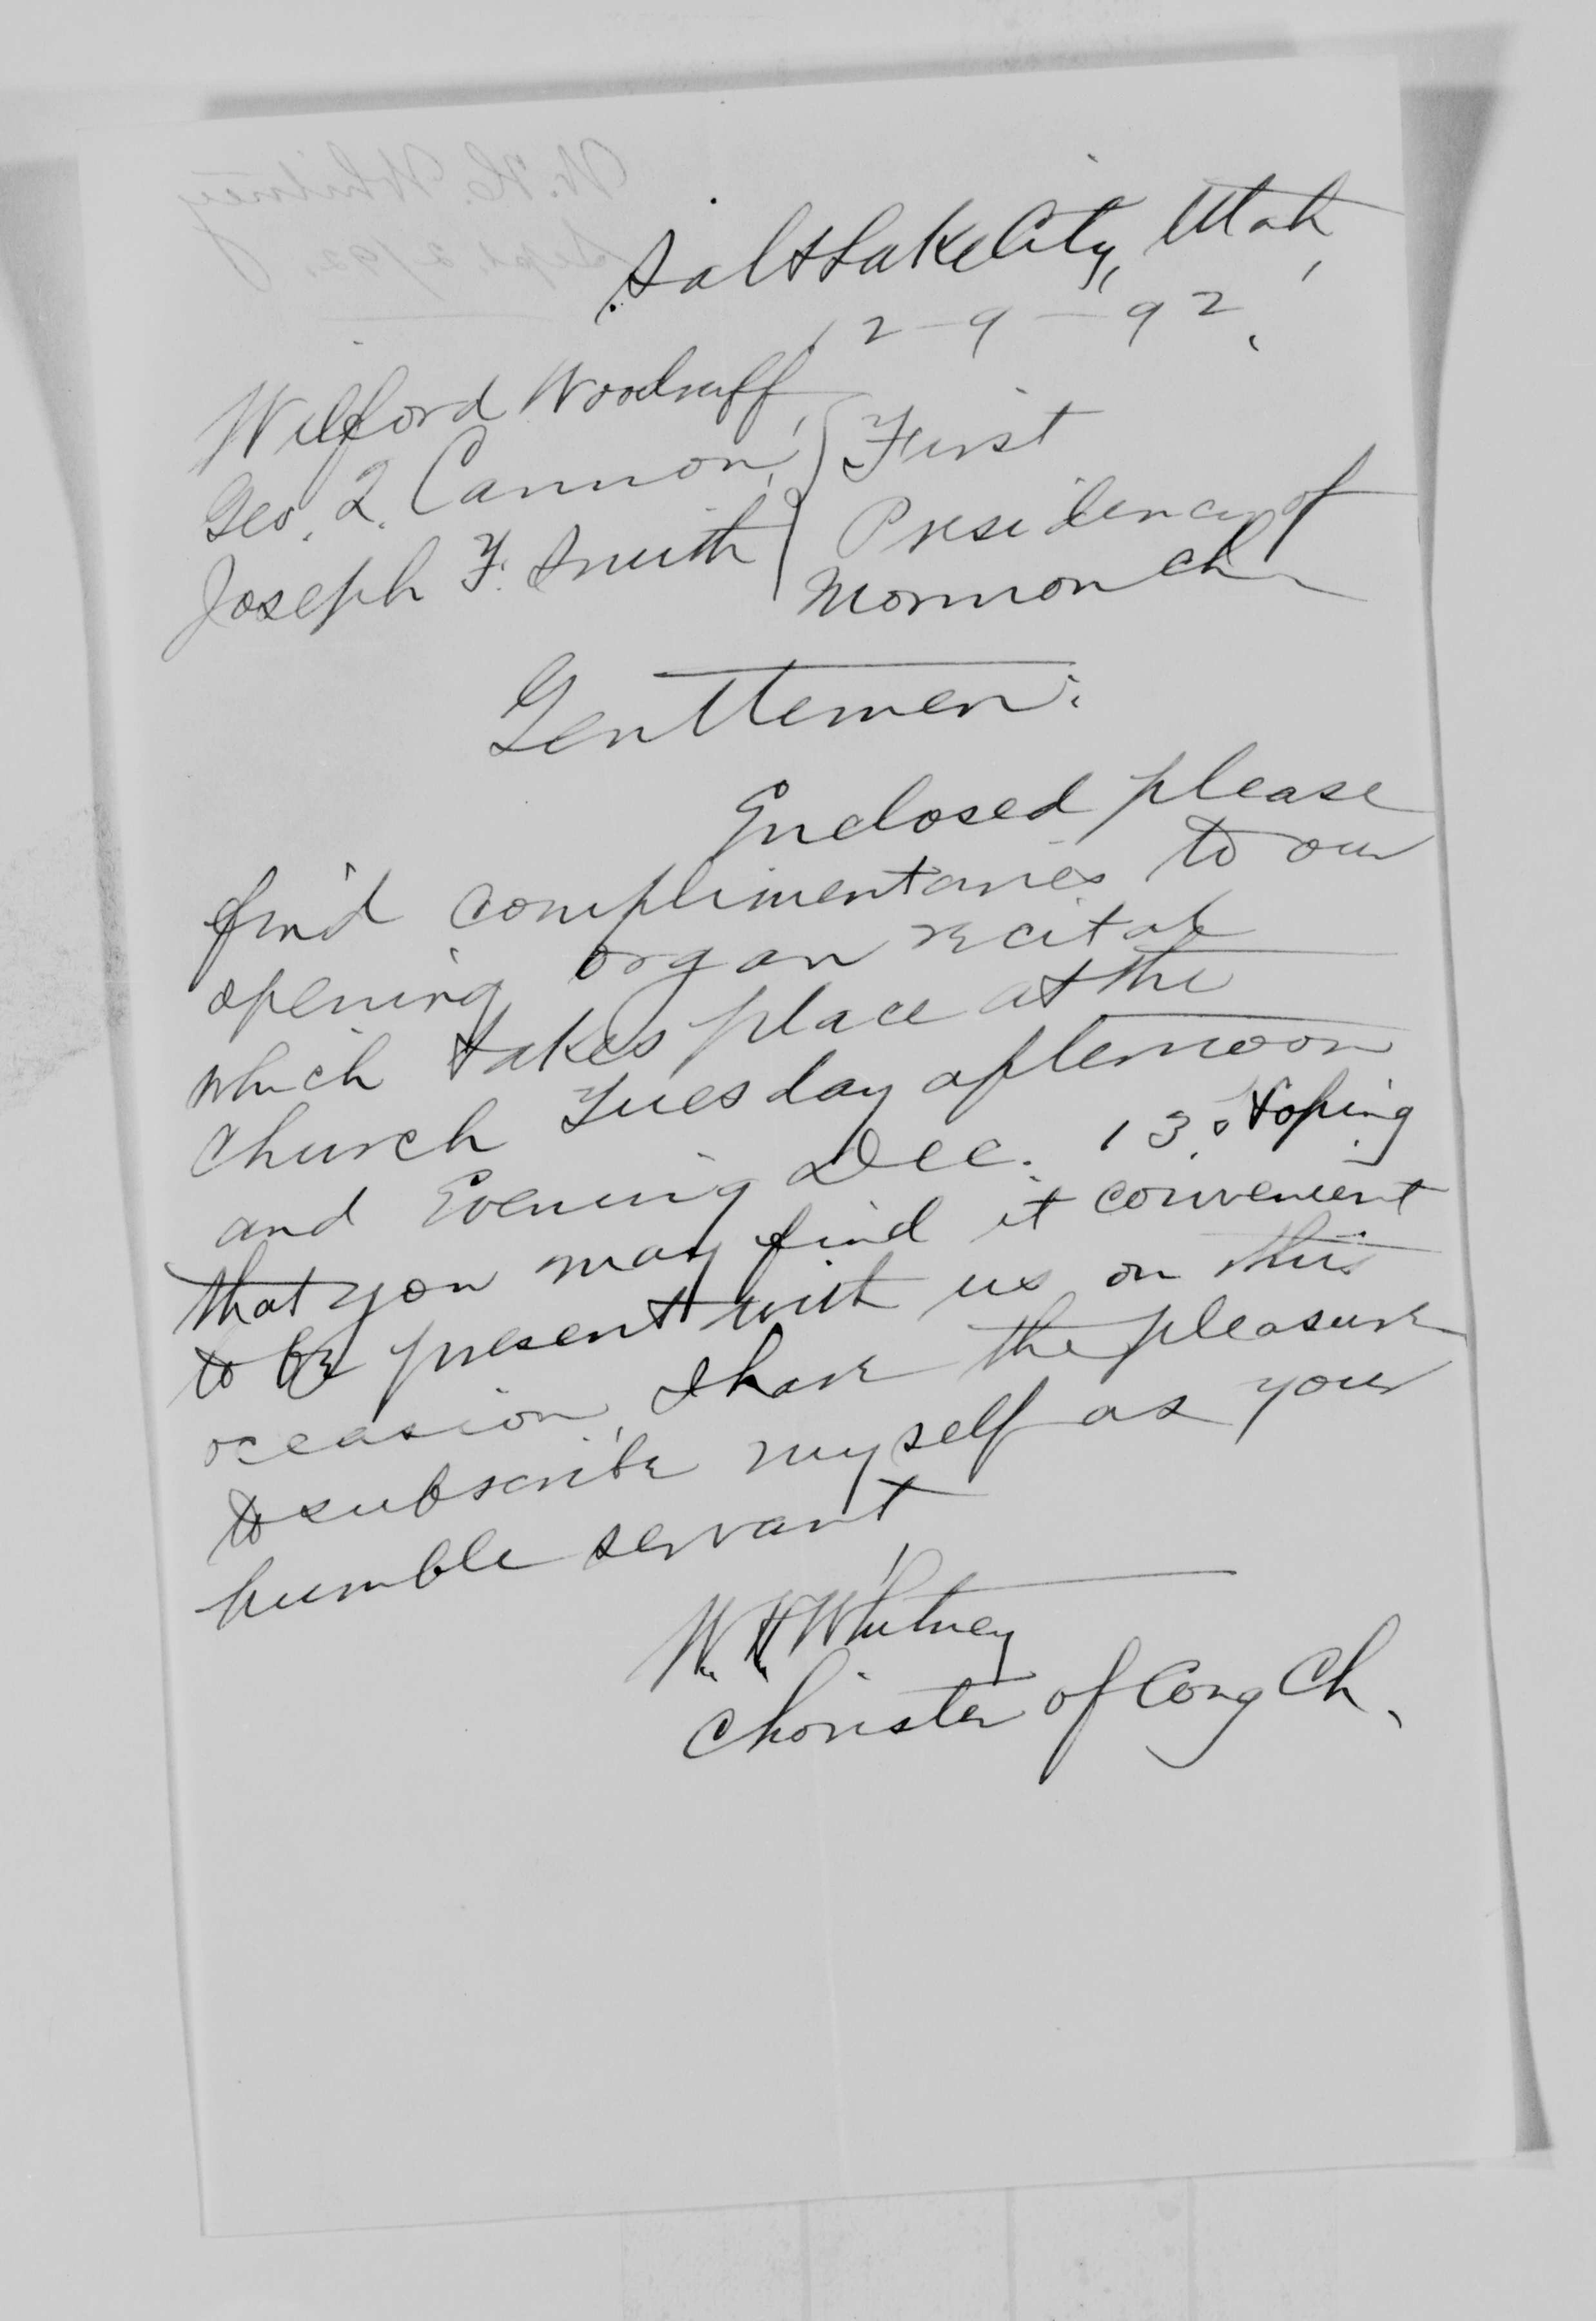 Salt Lake City, Utah,
12-9-92.
Wilford Woodruff, } First
Geo. Q. Cannon, } Presidency of
Joseph F. Smith } Mormon Ch
Gentlemen:
Enclosed please
find complimentaries to our
opening organ recital
which takes place at the
church Tuesday afternoon
and Evening Dec. 13. Hoping
that you may find it convenient
to be present with us on this
occasion, I have the pleasure
to subscribe myself as your
humble servant,
W. H. Whitney
Chorister of Cong Ch.
W. H. Whitney
Sept. 2/92.